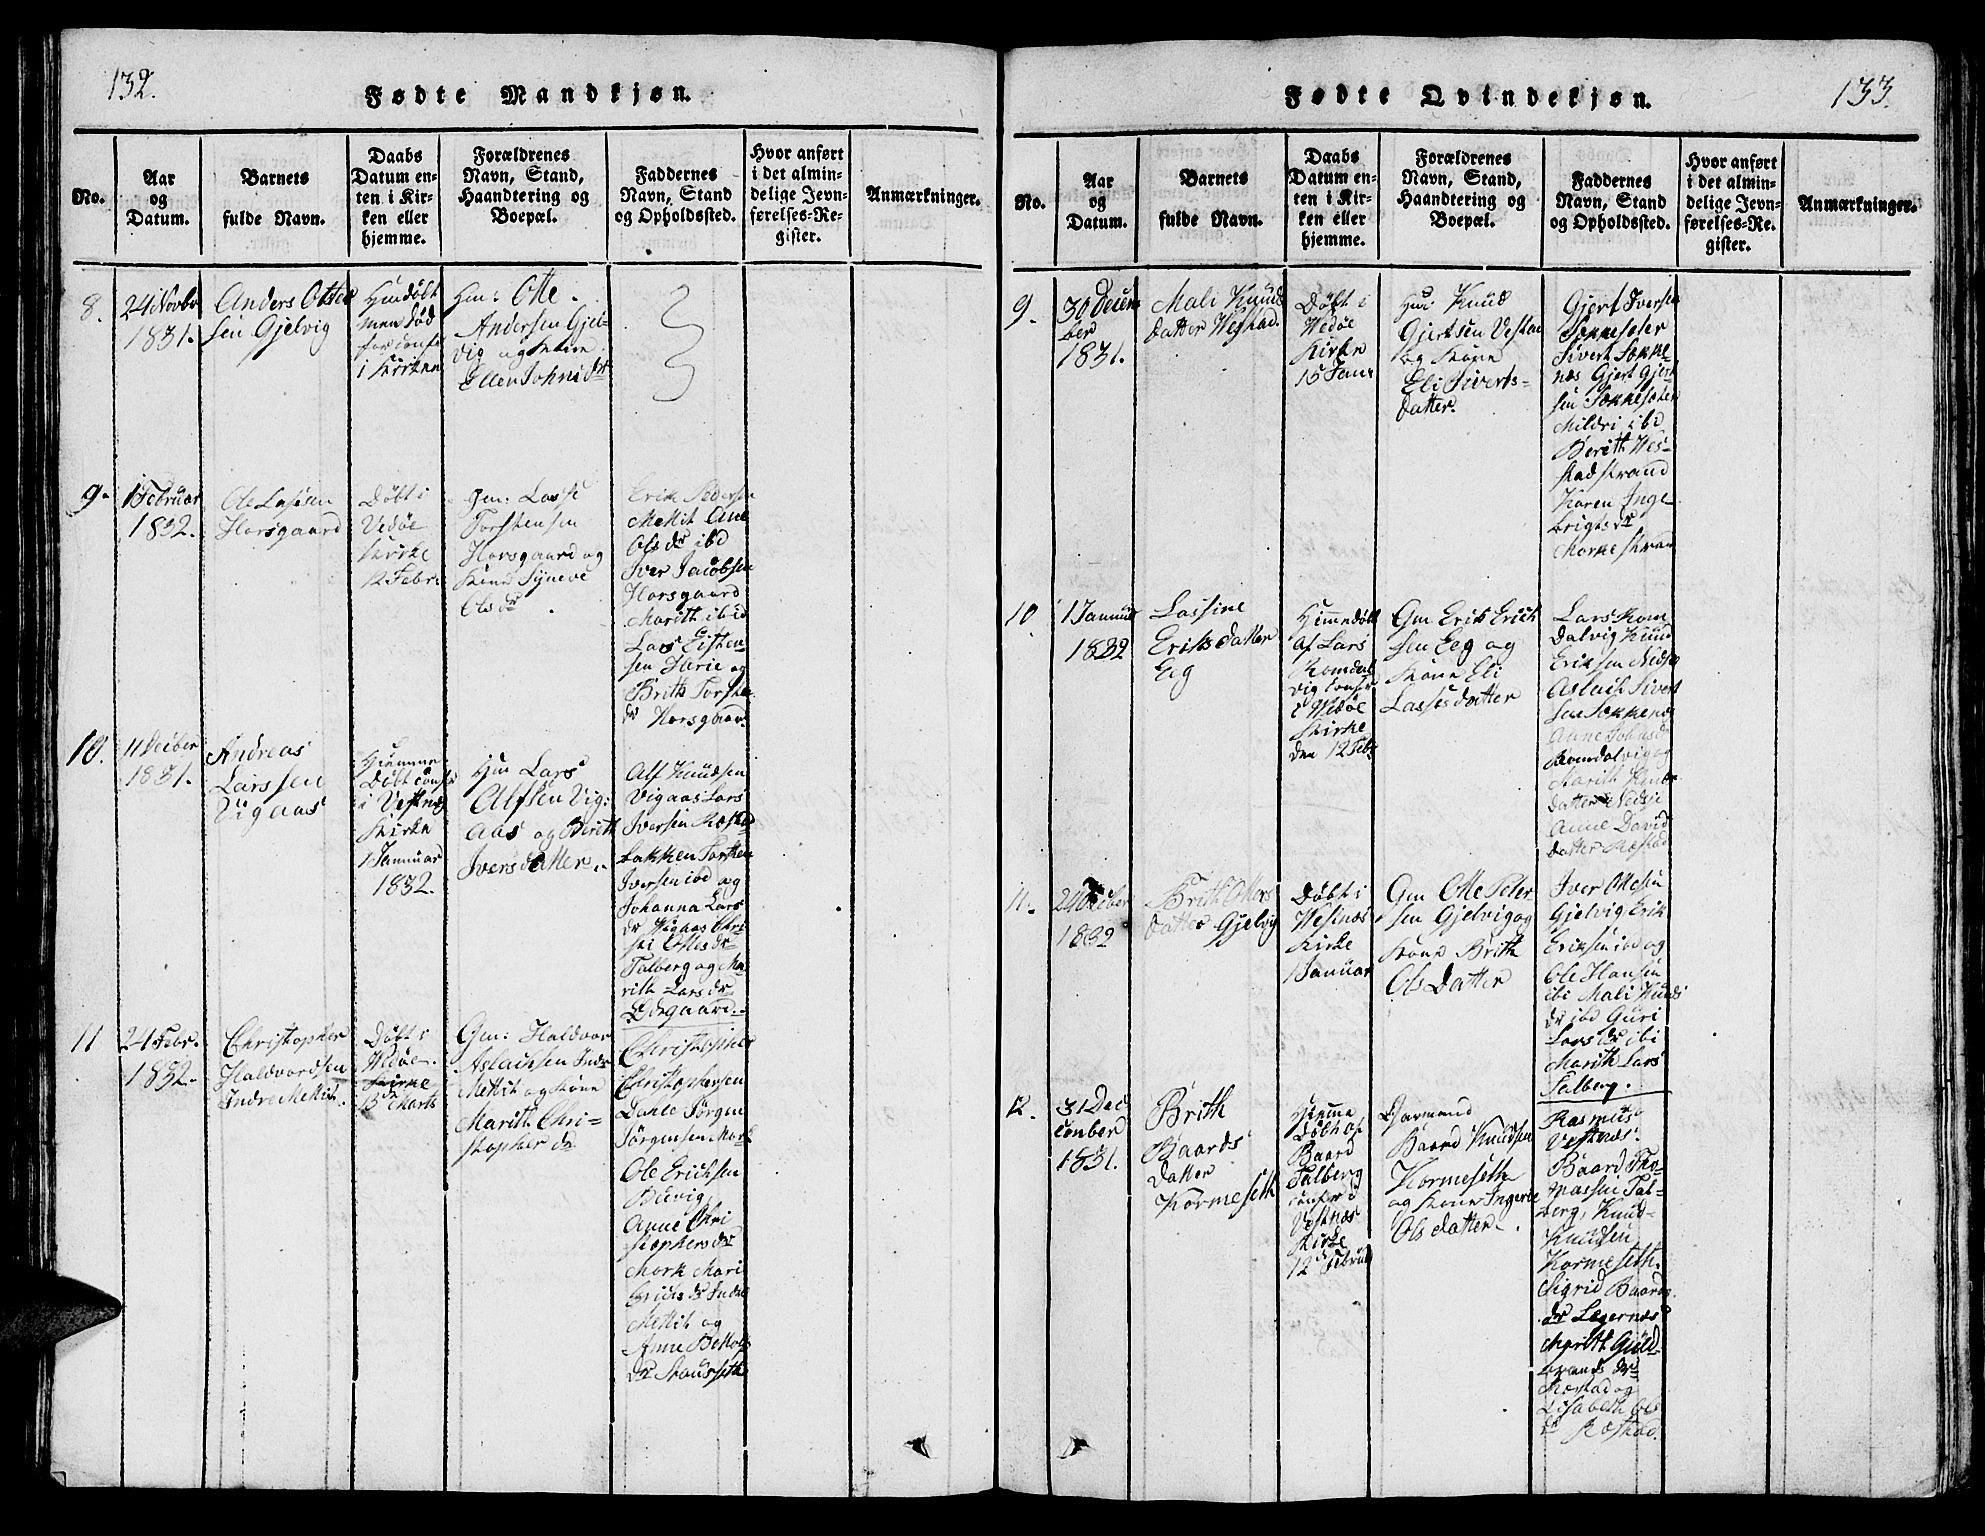 132.
Fødte Mandkjøn.
No.
Aar
og
Datum.
Barnets
fulde Navn.
Daabs
Datum en-
ten i Kir-
ken eller
hjemme.
Forældrenes
Navn, Stand,
Haandtering og
Boepæl.
Faddernes
Navn, Stand
og Opholdssted.
Hvor anført
i det almin-
delige Jevn-
førelses-Re-
gister.
Anmærkninger.
8.
24 Novbr
1831.
Anders Otte
sen Gjelvig
Hmdøbt
men død
før confr
i Kirken
Gm: Otte
Andersen Gjel-
vig og Kone
Ellen Johnsdr
9.
1 Februar
1832.
Ole Lassen
Horsgaard
Døbt i
Vedøe
Kirke
12 Febr.
Gm: Lasse
Torstensen
Horsgaard og
Kone Syneve
Olsdr.
Erik Pedersen
Mettit Ane
Olsdr ibd
Iver Jacobsen
Horsgaard
Marith ibid
Lars Eisten-
sen og
Brith Torsten
dr Horsgaard
10.
11 Decber
1831.
Andreas
Larssen
Vigaas
Hjemme
Døbt conf
i Vestnæs
Kirke
1 Januar
1832.
Gm Lars
Alfsen Vig-
aas og Berith
Iversdatter.
Alf Knudsen
Vigaas Lars
Iversen Ræstad
bakken Torsten
Iversen ibd og
Johanna Lars
dr Wigaas Chri-
sti Ottesdr
Talberg og Ma-
rith Larsdr
Ødegaard.
11
24 Febr.
1832.
Christopher
Haldvordsen
Indre Mettit.
Døbt i
Wedøe
Kirke
15 Marts
Gm: Haldvor
Aslaksen Indre
Mettit og Kone
Marith Chri-
stopherdr
Christopher
Christophersen
Dahle Jørgen
Jørgensen Mork
Ole Erichsen
Buvig
Anne Chri
stophersdr
Mork Mari
Erichsdr Indre
Mettit og
Anne
dr
133.
Fødte Qvindekjøn.
No.
Aar
og
Datum.
Barnets
fulde Navn.
Daabs
Datum en-
ten i Kir-
ken eller
hjemme.
Forældrenes
Navn, Stand,
Haandtering og
Boepæl.
Faddernes
Navn, Stand
og Opholdssted.
Hvor anført
i det almin-
delige Jevn-
førelses-Re-
gister.
Anmærkninger.
9.
30 Decem
ber
1831.
Mali Knuds
datter Westad.
Døbt i
Wedøe
Kirke
15 Janr
Gm: Knud
Gjertsen Vestad
og Kone
Eli Siverts-
datter.
Gjert Iversen
Sivert Sække-
næs Gjert Gjert
sen
Mildri ibd
Berith Wes-
tadstrand
Karen Inge-
brigtsdr
10
1 Januar
1832
Lassine
Eriksdatter
Eeg
Hjemedøbt
af Lars
Romdal
vig confr
i Wedøe
Kirke
den 12 Feb.
Gm Erik Erick
sen Eeg og
Kone Eli
Lassesdatter
Lars Rom
dalvig Knud
Eriksen
Aslak Sivert
sen Sækkenæs
Anne Johnsdr
Romdalvig og
Marith
datter
Anne David
datter Ræstad
11.
24 Decber
1832
Brith Ottes
datter Gjelvig
Døbt i
Westnæs
Kirke
1 Januar
Gm Otte Peter
sen Gjelvig og
Kone Brith
Olsdatter
Iver Ottesen
Gjelvig Erik
Eriksen ibd og
Ole Hansen
ibi Mali Knuds
dr ibd Guri
Larsdr ibi
Marith Lars
Talberg.
12.
31 Dec
cember
1831.
Brith
Baards
datter
Kormeseth
Hjemme
Døbt af
Baard
Talberg
confr i
Vestnæs
Kirke
12 Februar
Gaarmand
Baard Knudsen
Kormeseth
og Kone Ingeri
Olsdatter.
Rasmus
Vestnæs.
Baard Tho-
massen Tal-
berg, Knud
Knudsen
Kormeseth.
Sigrid Baards
dr Legernæs
Marith Guld-
brandsdr
Ræstad og
Lisabeth Ols
dr Ræstad.